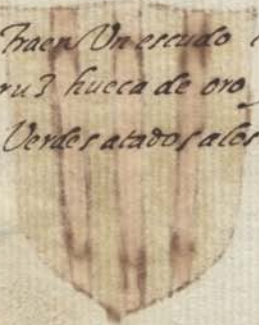 Traen Un escudo
ruz hueca de oro
Verdes atados a los